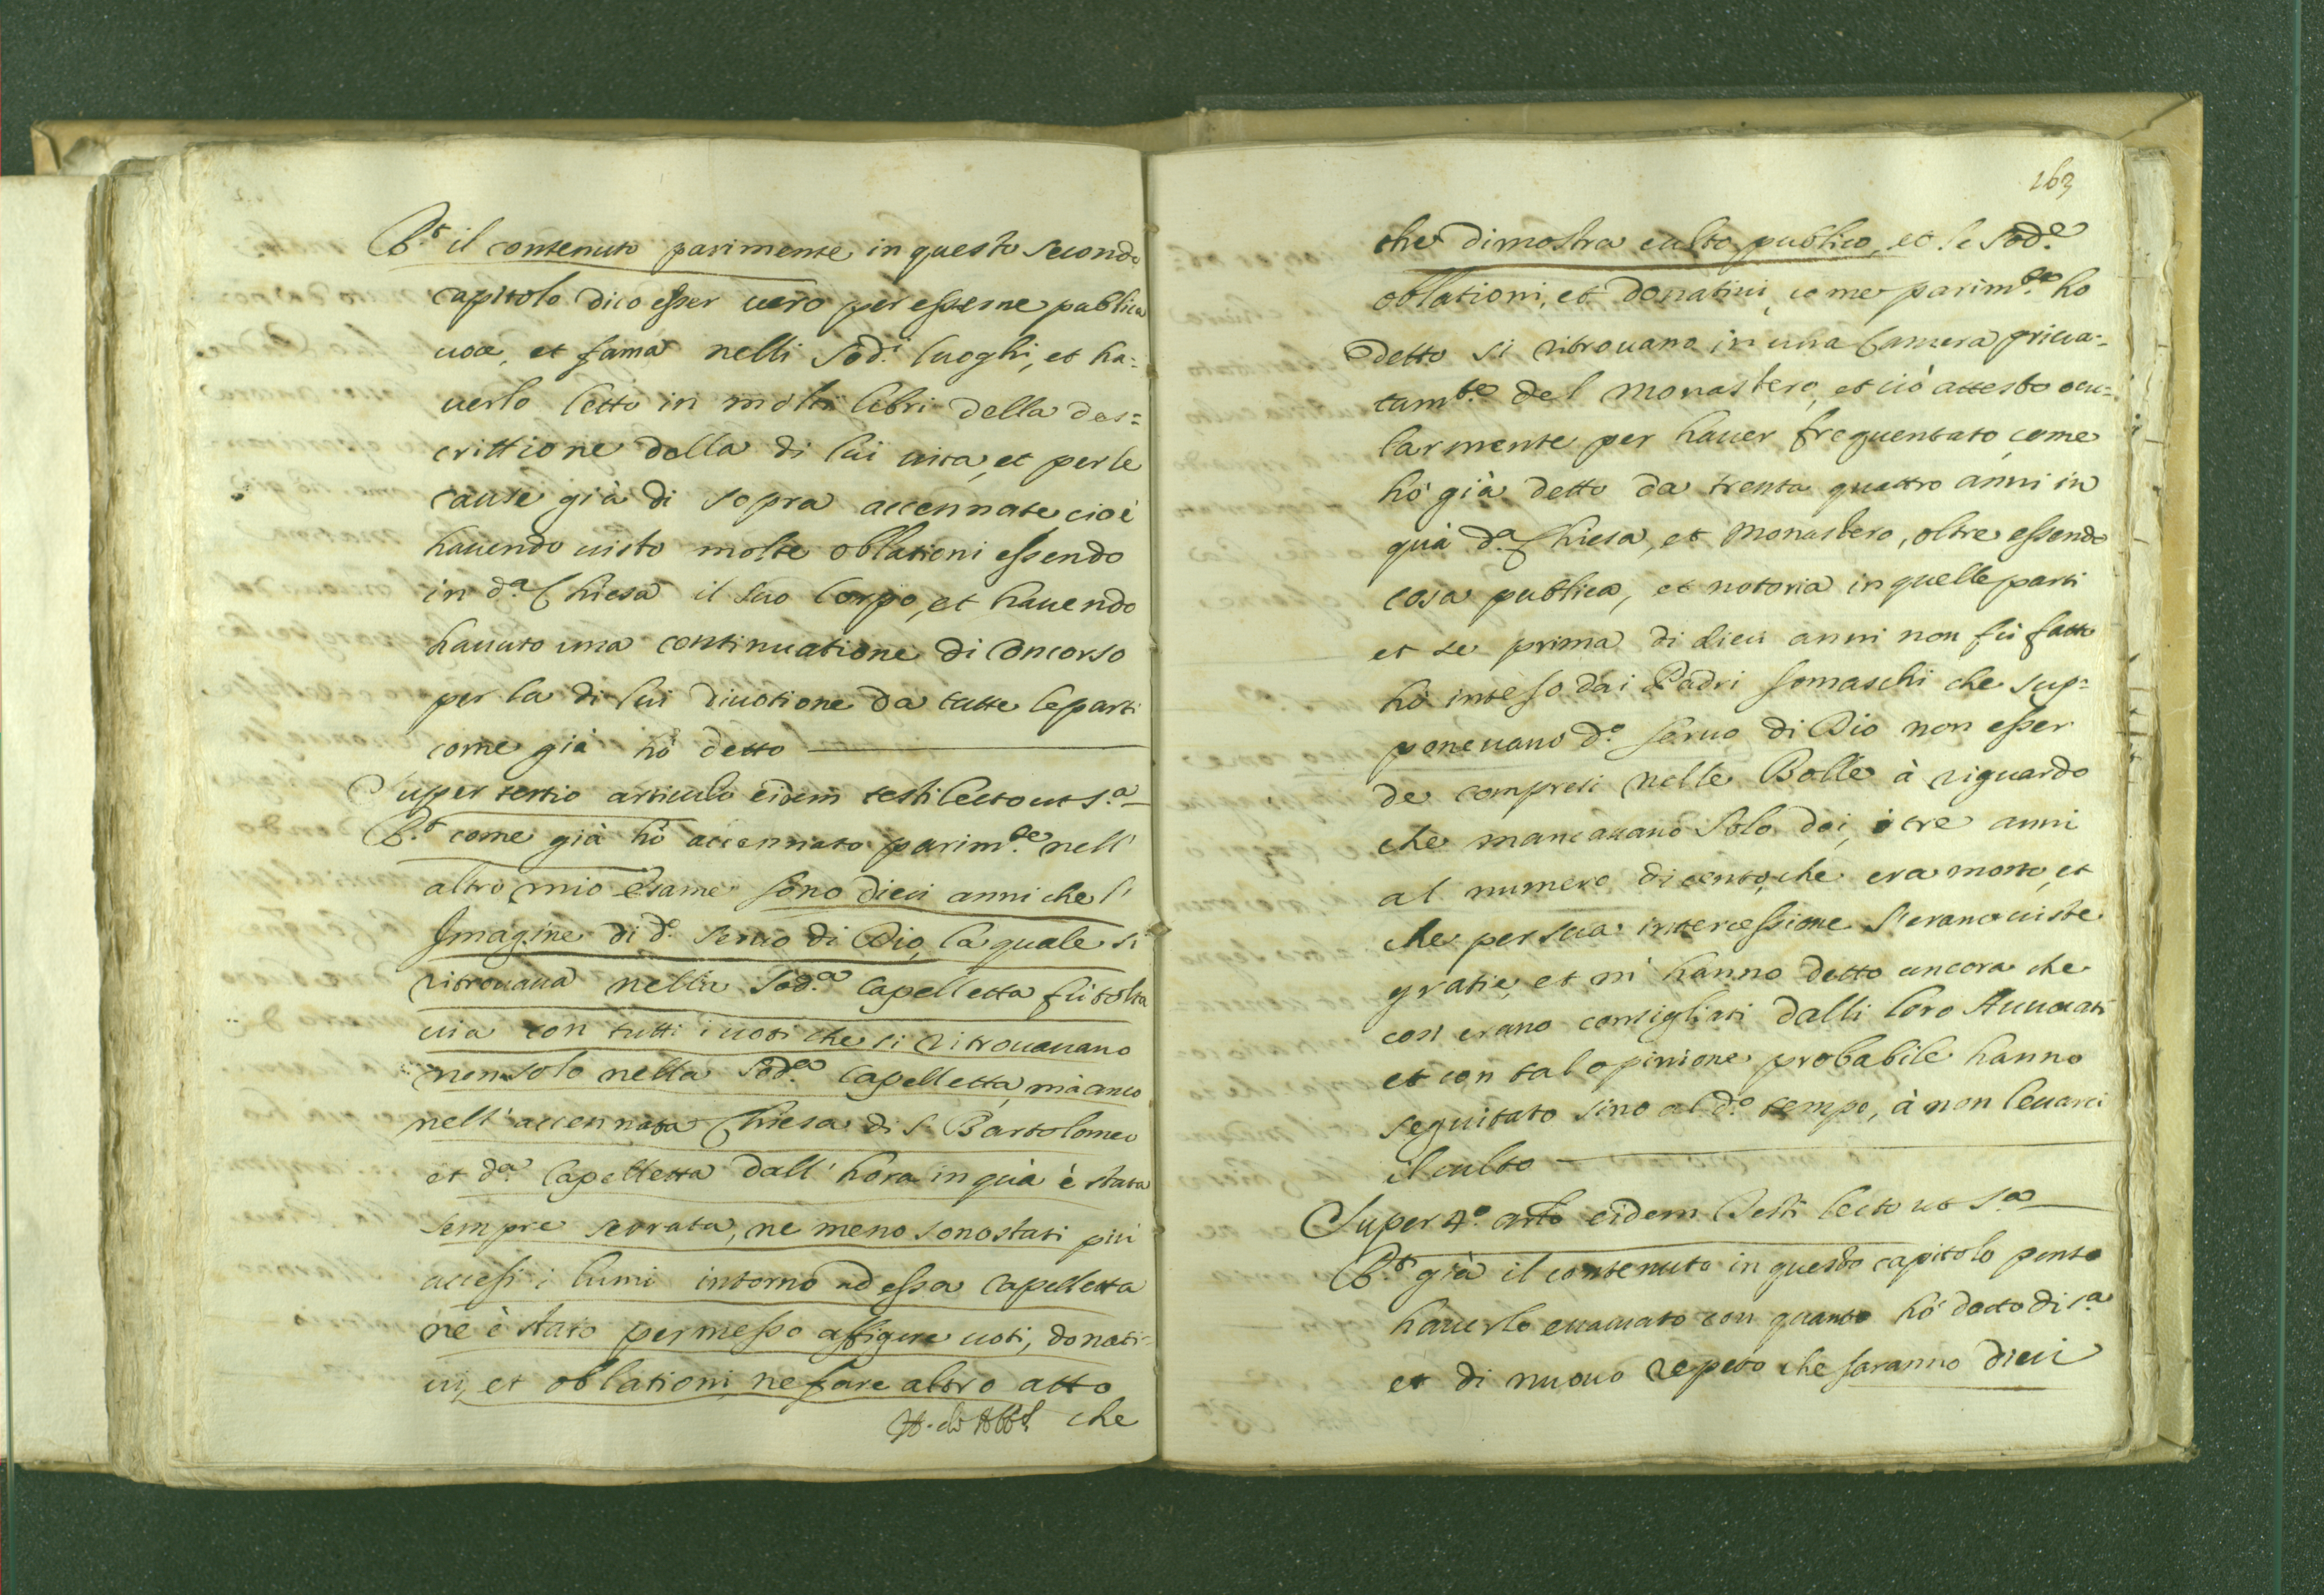 R.t il contenuto parimente in questo secondo
capitolo dico esser uero per esserne publica
uoce, et fama nelli Sod.i luoghi, et ha=
uerlo letto in molti libri della des=
crittione della di lui uita, et per le
cause già di sopra accennate, cioè
hauendo uisto molte oblationi essendo
in d.a Chiesa il suo Corpo, et hauendo
hauuto una continuatione di Concorso
per la di lui diuotione da tutte le parti
come già hò detto
Super tertio articulo eidem testi lecto ut s.a
R.t come già hò accennato parim.te nell'
altro mio esame sono dieci anni che l'
Imagine di d.o Seruo di Dio, la quale si
ritrouaua nella Sod.a Capelletta fù tolta
uia con tutti i uoti che si ritrouauano
non solo nella Sod.a Capelletta, mà anco
nell' accennata Chiesa di S. Bartolomeo
et d.a Capelletta dall' hora in quà è stata
sempre serrata, ne meno sono stati più
accesi i lumi intorno ad essa Capelletta
ne è stato permesso affigere uoti, donati=
ui, et oblationi, ne fare altro atto
che
163
che dimostra culto publico, et le Sod.e
oblationi, et donatiui, come parim.te ho
detto si ritrouano in una Camera priua=
tam.te del Monastero, et ciò attesto ocu=
larmente per hauer frequentato, come
hò già detto da trenta quattro anni in
quà d.a Chiesa, et Monastero, oltre essendo
cosa publica, et notoria in quelle parti
et se prima di dieci anni non fù fatto
hò inteso dai Padri Somaschi che sup=
poneuano d.o Seruo di Dio non esser
de compresi nelle Bolle à riguardo
che mancauano solo doi, ò tre anni
al numero di cento, che era morto, et
che per sua intercessione s'erano uiste
gratie, et mi hanno detto ancora che
così erano consigliati dalli loro Auuocati
et con tal opinione probabile hanno
seguitato sino al d.o tempo, à non leuarci
il culto
Super 4.o arlo eidem Testi lecto ut s.a
R.t già il contenuto in questo capitolo penso
hauerlo euacuato con quanto hò detto di s.a
et di nuouo repeto che saranno dieci